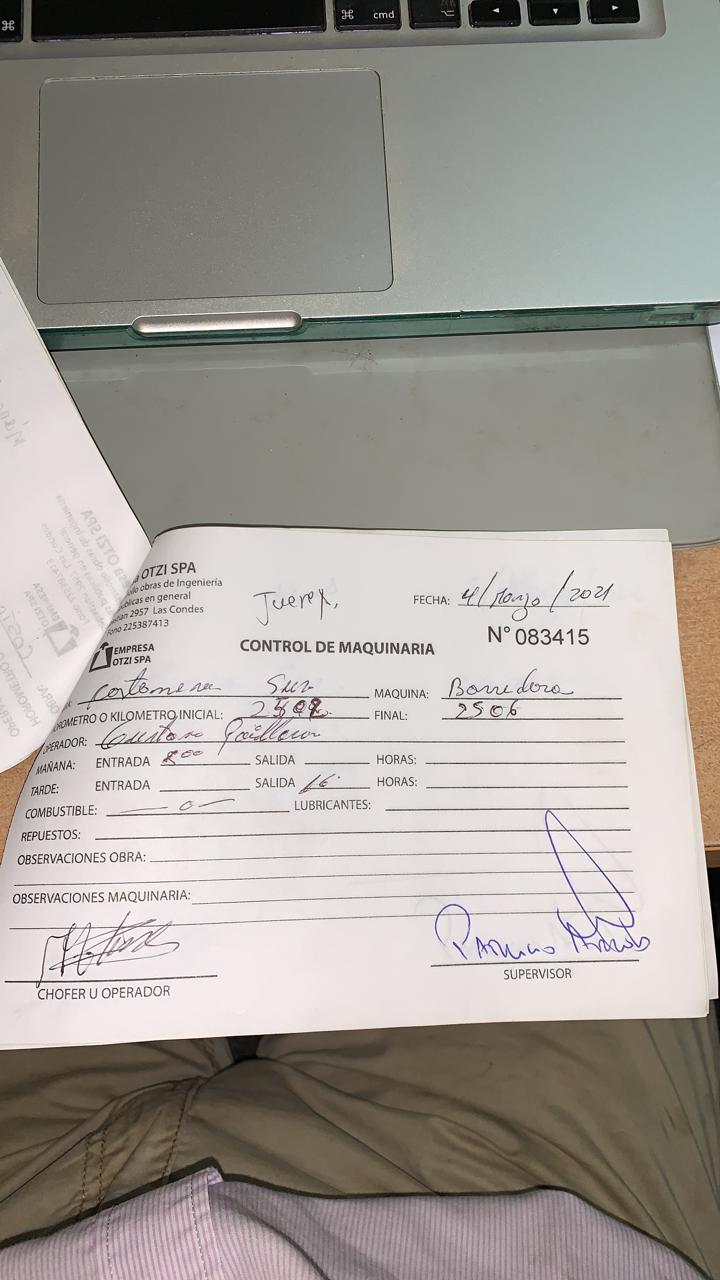 ⌘
⌘ cmd
⌥
◄
▼
►
OTZI SPA
obras de Ingeniería
en general
2957 Las Condes
225387413
EMPRESA
OTZI SPA
Jueves,
FECHA: 4/Marzo/2021
N° 083415
CONTROL DE MAQUINARIA
Costanera Sur MAQUINA: Barredora
HOROMETRO O KILOMETRO INICIAL: FINAL: 2506
OPERADOR: Gustavo
MAÑANA: ENTRADA 8:00 SALIDA HORAS:
TARDE: ENTRADA SALIDA 16 HORAS:
COMBUSTIBLE: —o— LUBRICANTES:
REPUESTOS:
OBSERVACIONES OBRA:
OBSERVACIONES MAQUINARIA:
CHOFER U OPERADOR
SUPERVISOR